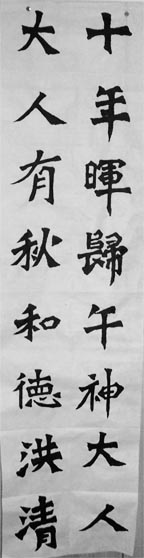 十年暉歸午神大人
大人有秋和德洪清